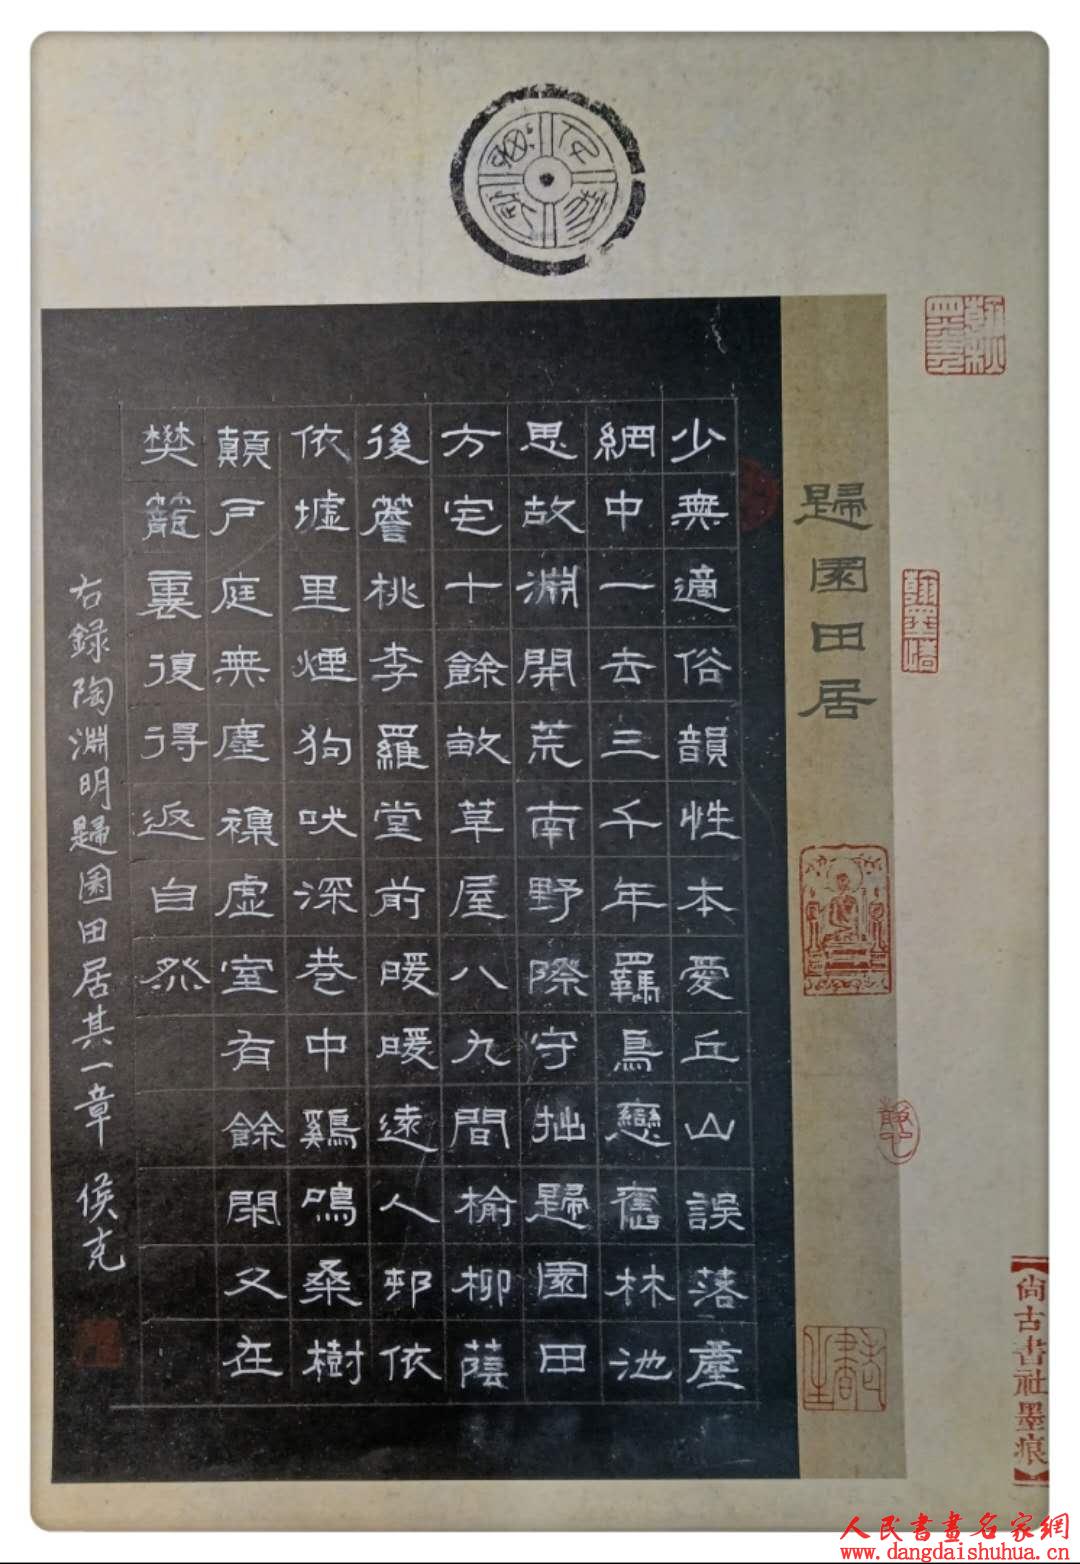 歸園田居
少無適俗韻性本愛丘山誤落塵
網中一去三千年羈鳥戀舊林池
思故淵開荒南野際守拙歸園田
方宅十餘畝草屋八九間榆柳蔭
後簷桃李羅堂前暖暖遠人邨依
依墟里煙狗吠深巷中鷄鳴桑樹
顛戶庭無塵襍虛室有餘閑又在
樊籠裏復得返自然
右錄陶淵明歸園田居其一章 侯克
【尚古書社墨痕】
人民書畫名家網
www.dangdaishuhua.cn